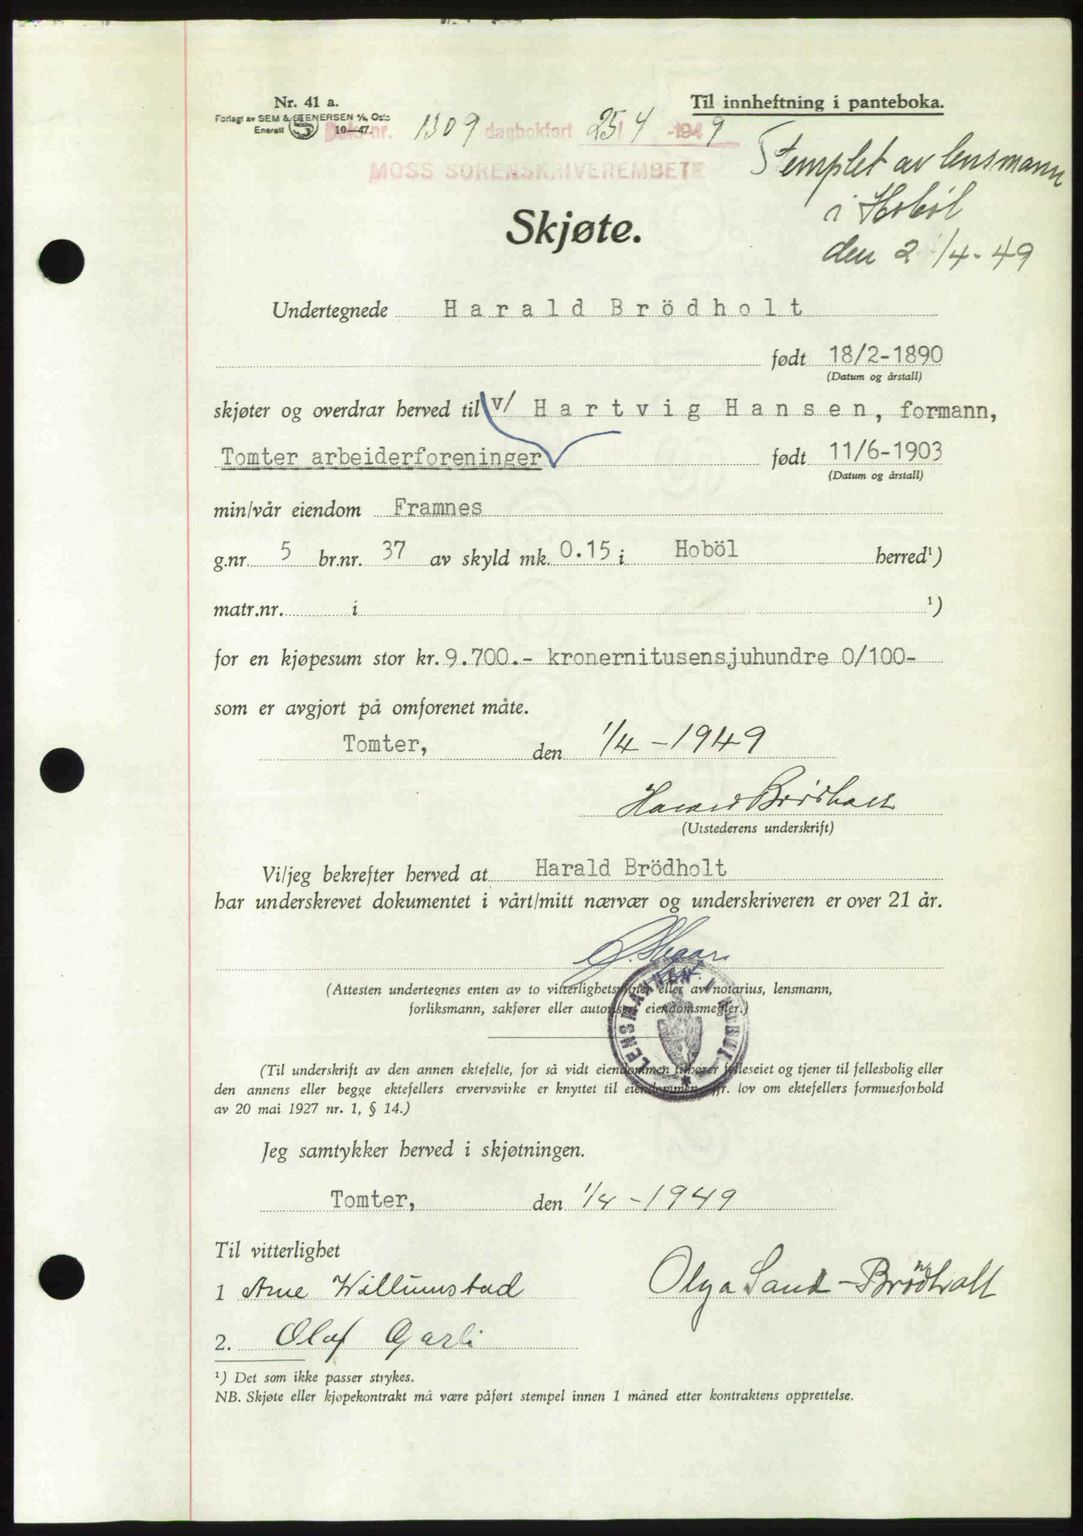 Nr. 41 a.
Forlagt av SEM & STENERSEN A/S, Oslo
Enerett S 10-47.
Til innheftning i panteboka.
Dok. nr. 1309 dagbokført 25/4 -1949
MOSS SORENSKRIVEREMBETE
Stemplet av lensmann
i Hobøl
den 21/4-49
Skjøte.
Undertegnede Harald Brödholt
født 18/2-1890
(Datum og årstall)
skjøter og overdrar herved til v/ Hartvig Hansen, formann,
Tomter arbeiderforeninger født 11/6-1903
(Datum og årstall)
min/vår eiendom Framnes
g.nr. 5 br.nr. 37 av skyld mk. 0.15 i Hoböl herred¹)
matr.nr. i ¹)
for en kjøpesum stor kr. 9.700.- kronernitusensjuhundre 0/100-
som er avgjort på omforenet måte.
Tomter, den 1/4-1949
Harald Brödholt
(Utstederens underskrift)
Vi/jeg bekrefter herved at Harald Brödholt
har underskrevet dokumentet i vårt/mitt nærvær og underskriveren er over 21 år.
(Attesten undertegnes enten av to vitterlighetsvitner eller av notarius, lensmann,
forliksmann, sakfører eller autorisert eiendomsmegler.)
LENSMANNEN I HOBØL
(Til underskrift av den annen ektefelle, for så vidt eiendommen tilhører felleseiet og tjener til fellesbolig eller
den annens eller begge ektefellers ervervsvirke er knyttet til eiendommen, jfr. lov om ektefellers formuesforhold
av 20 mai 1927 nr. 1, § 14.)
Jeg samtykker herved i skjøtningen.
Tomter, den 1/4-1949
Til vitterlighet
1 Arne Willumstad
Olga Sand-Brödholt
2. Olaf Garli
¹) Det som ikke passer strykes.
NB. Skjøte eller kjøpekontrakt må være påført stempel innen 1 måned etter kontraktens opprettelse.